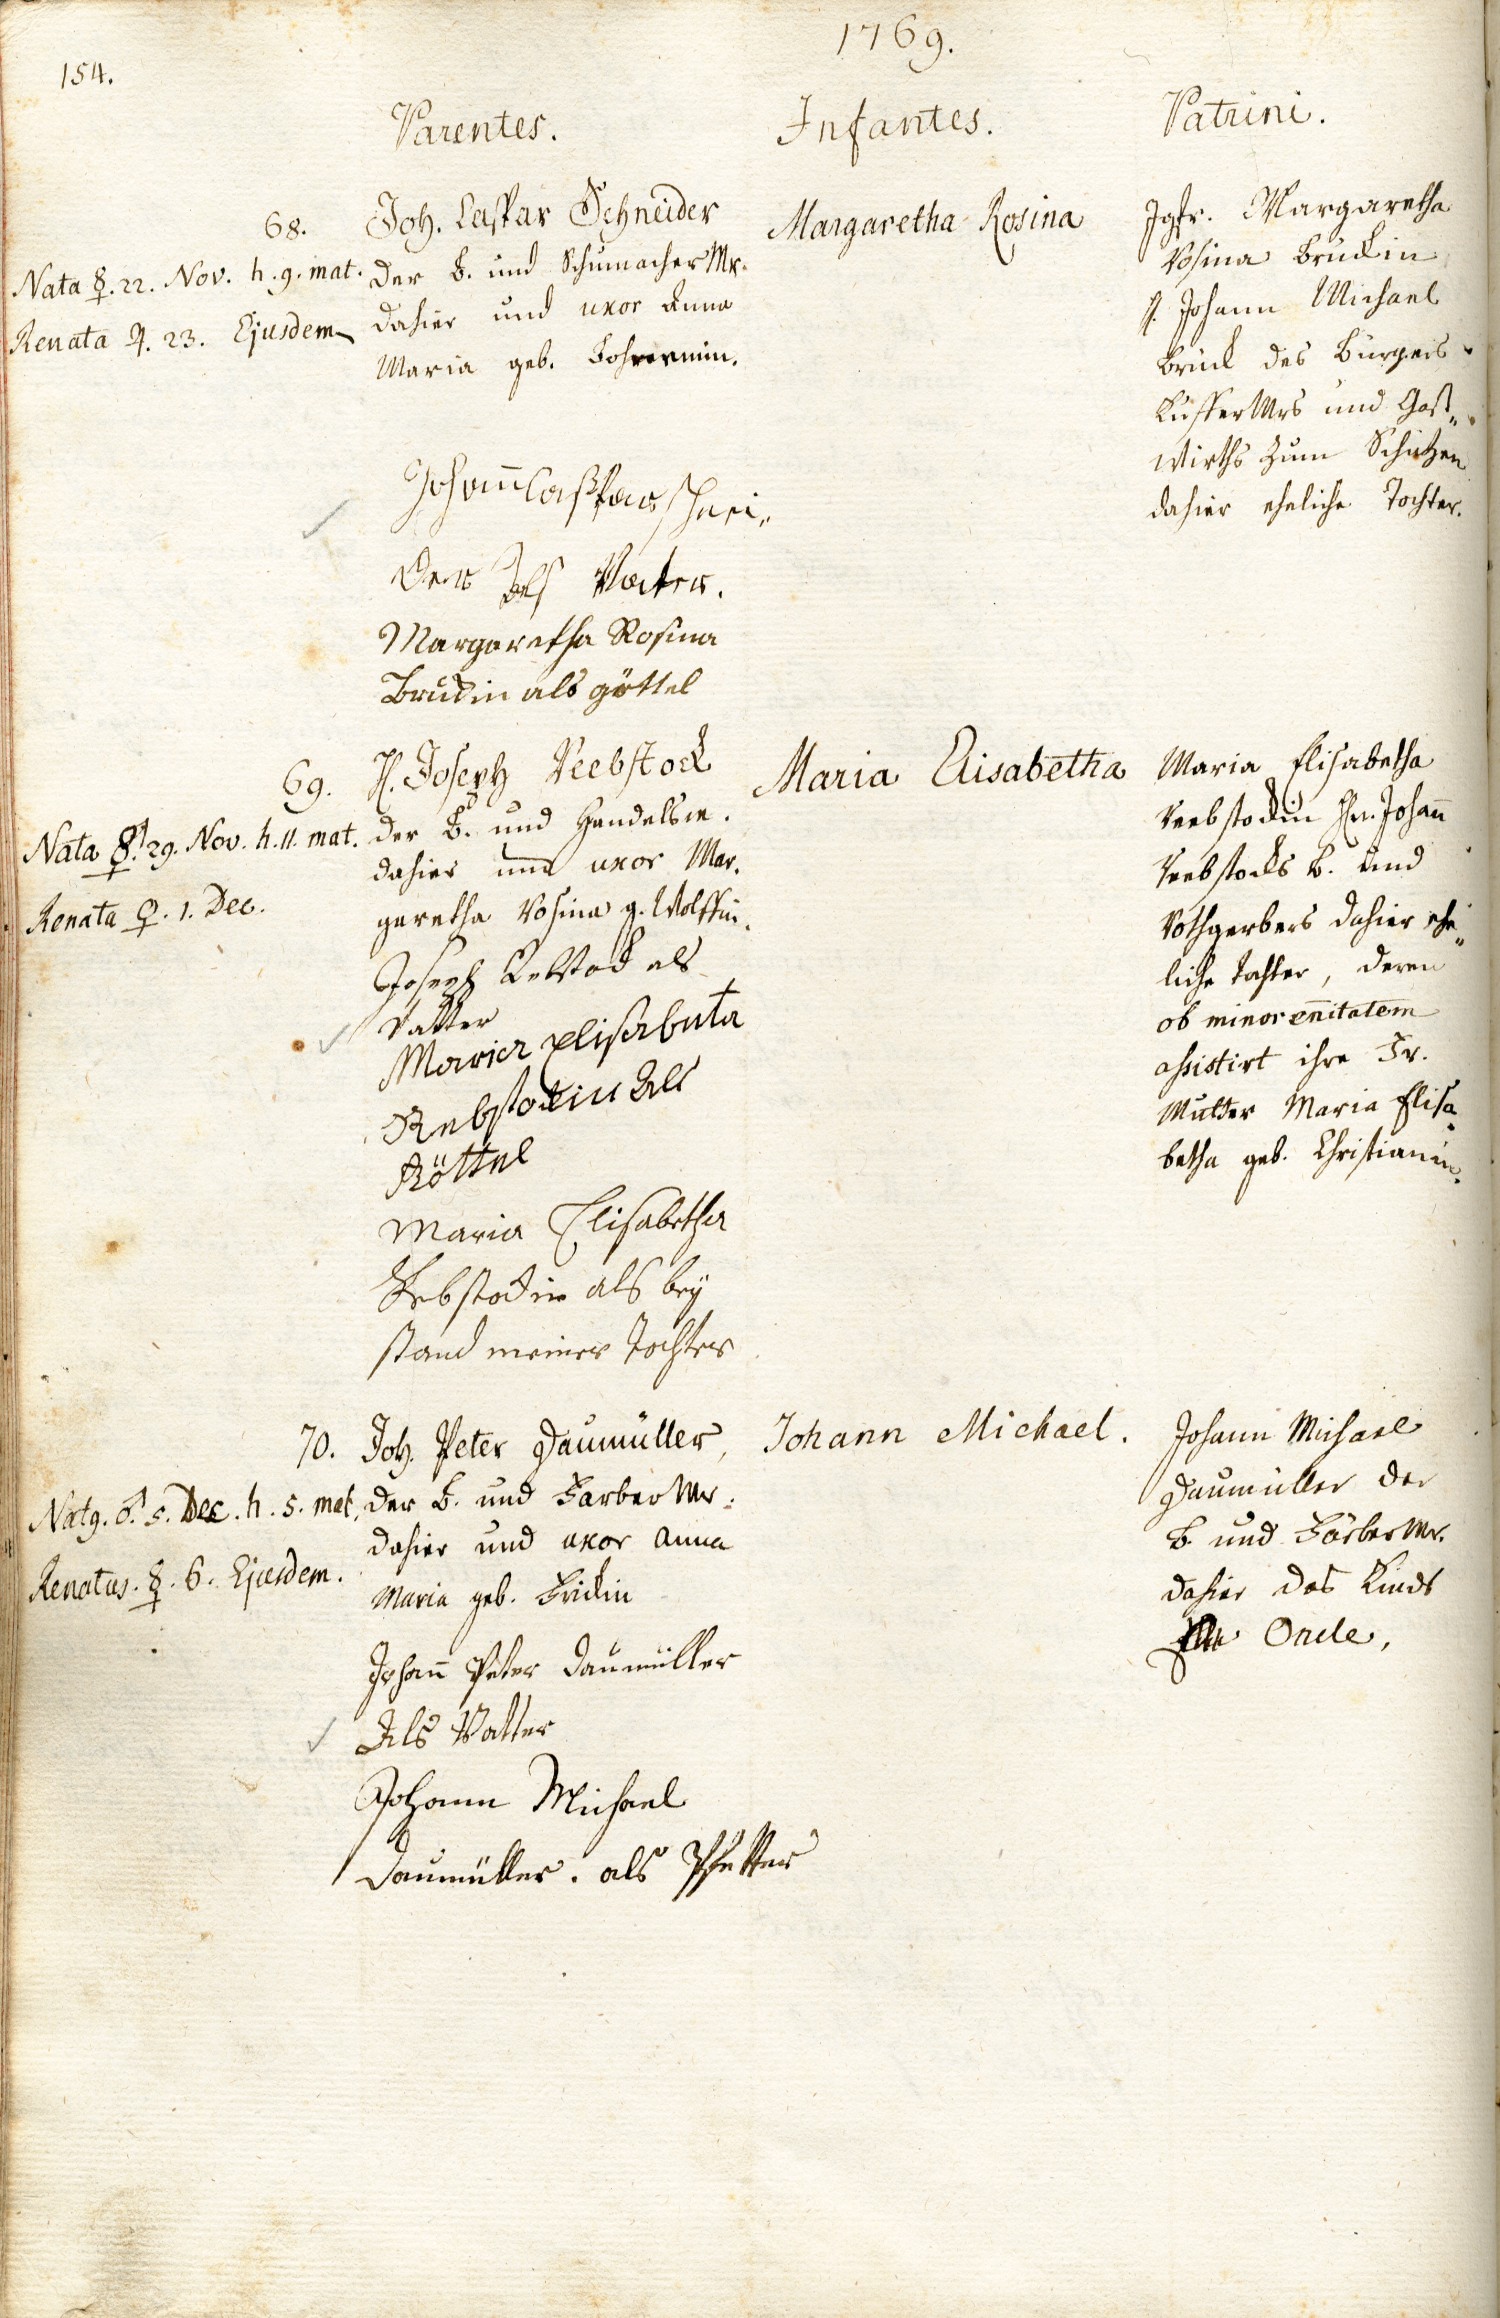 1769.
154.
Parentes.
Infantes.
Patrini.
68.
Nata ☿. 22. Nov. h. 9. mat.
Renata ♃. 23. Ejusdem
Joh. Caspar Schneider
der B. und Schumacher Mr.
dahier und uxor Anna
Maria geb.
Johann Caspar Schnei„
der Als Vater.
Margaretha Rosina
Bruckin als göttel
Margaretha Rosina
Jgfr. Margaretha
Rosina Bruckin
H. Johann Michael
Bruck des Burgers
Küffer Mrs und Gast„
wirths zum Schützen
dahier eheliche Tochter.
69.
Nata ☿. 29. Nov. h. 11. mat.
Renata ♀. 1. Dec.
H. Joseph Reebstock
der B. und Handelsm.
dahier und uxor Mar.
garetha Rosina g. Wolffin.
Joseph Rebstock als
Vatter
Maria Elisabeta
Rebstockin Als
Göttel
Maria Elisabetha
Rebstockin als bey
stand meiner Tochter
Maria Elisabetha
Maria Elisabetha
Reebstockin Hn. Johann
Reebstocks B. und
Rothgerbers dahier ehe„
liche Tochter, deren
ob minorennitatem
assistirt ihre Fr.
Mutter Maria Elisa„
betha geb. Christianin.
70.
Natq. ♂. 5. Dec. h. 5. mat.
Renatus. ☿. 6. Ejusdem.
Joh. Peter Daumüller,
der B. und Farber Mr.
dahier und uxor Anna
Maria geb. Frickin
Johann Peter Daumüller
Als Vatter
Johann Michael
Daumüller. als Pfetter
Johann Michael.
Johann Michael
Daumüller der
B. und Färber Mr.
dahier des Kinds
Oncle,